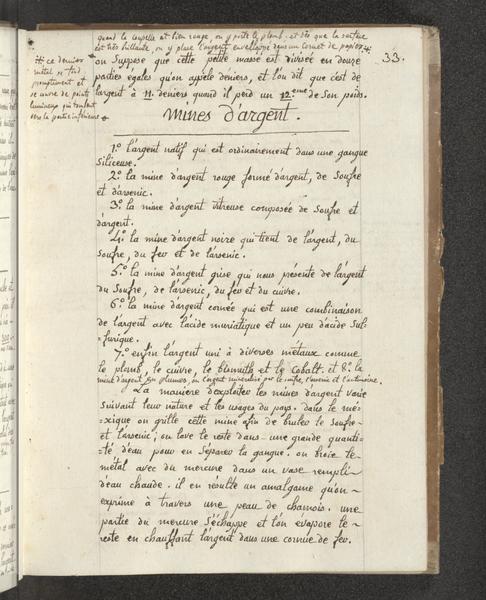 quand la coupelle est bien rouge, on y porte le plomb. et dès que la surface
est très brillante, on y place l'argent enveloppé dans un cornet de papier ⁜
33.
⁜ ce dernier
métal se fond
promptement et
se couvre de points
lumineux qui tombent
vers la partie inférieure
on suppose que cette petite masse est divisée en douze
parties egales qu'on appèle deniers, et l'on dit que c'est de
l'argent à 11. deniers, quand il perd un 12.eme de son poids.
Mines d'argent.
1.º l'argent natif qui est ordinairement dans une gangue
siliceuse.
2.º la mine d'argent rouge formé d'argent, de soufre
et d'arsenic.
3.º la mine d'argent vitreuse composée de soufre et
d'argent.
4.º la mine d'argent noire qui tient de l'argent, du
soufre, du fer et de l'arsenic.
5.º la mine d'argent grise qui nous présente de l'argent
du soufre, de l'arsenic, du fer et du cuivre.
6.º la mine d'argent cornée qui est une combinaison
de l'argent avec l'acide muriatique et un peu d'acide sul-
furique.
7.º enfin l'argent uni à diverses métaux comme
le plomb, le cuivre, le bismuth et le cobalt. et 8.º la
mine d'argent en plumes, ou l'argent minéralisé par le soufre, l'arsenic et l'antimoine.
La maniere d'exploiter les mines d'argent varie
suivant leur nature et les usages du pays. dans le me-
xique on grille cette mine afin de bruler le soufre
et l'arsenic, on lave le reste dans une grande quanti-
té d'eau pour en séparer la gangue. on broie le
métal avec du mercure dans un vase rempli
d'eau chaude. il en résulte un amalgame qu'on
exprime à travers une peau de chamois. une
partie du mercure s'échappe et l'on evapore le
reste en chauffant l'argent dans une cornue de fer.